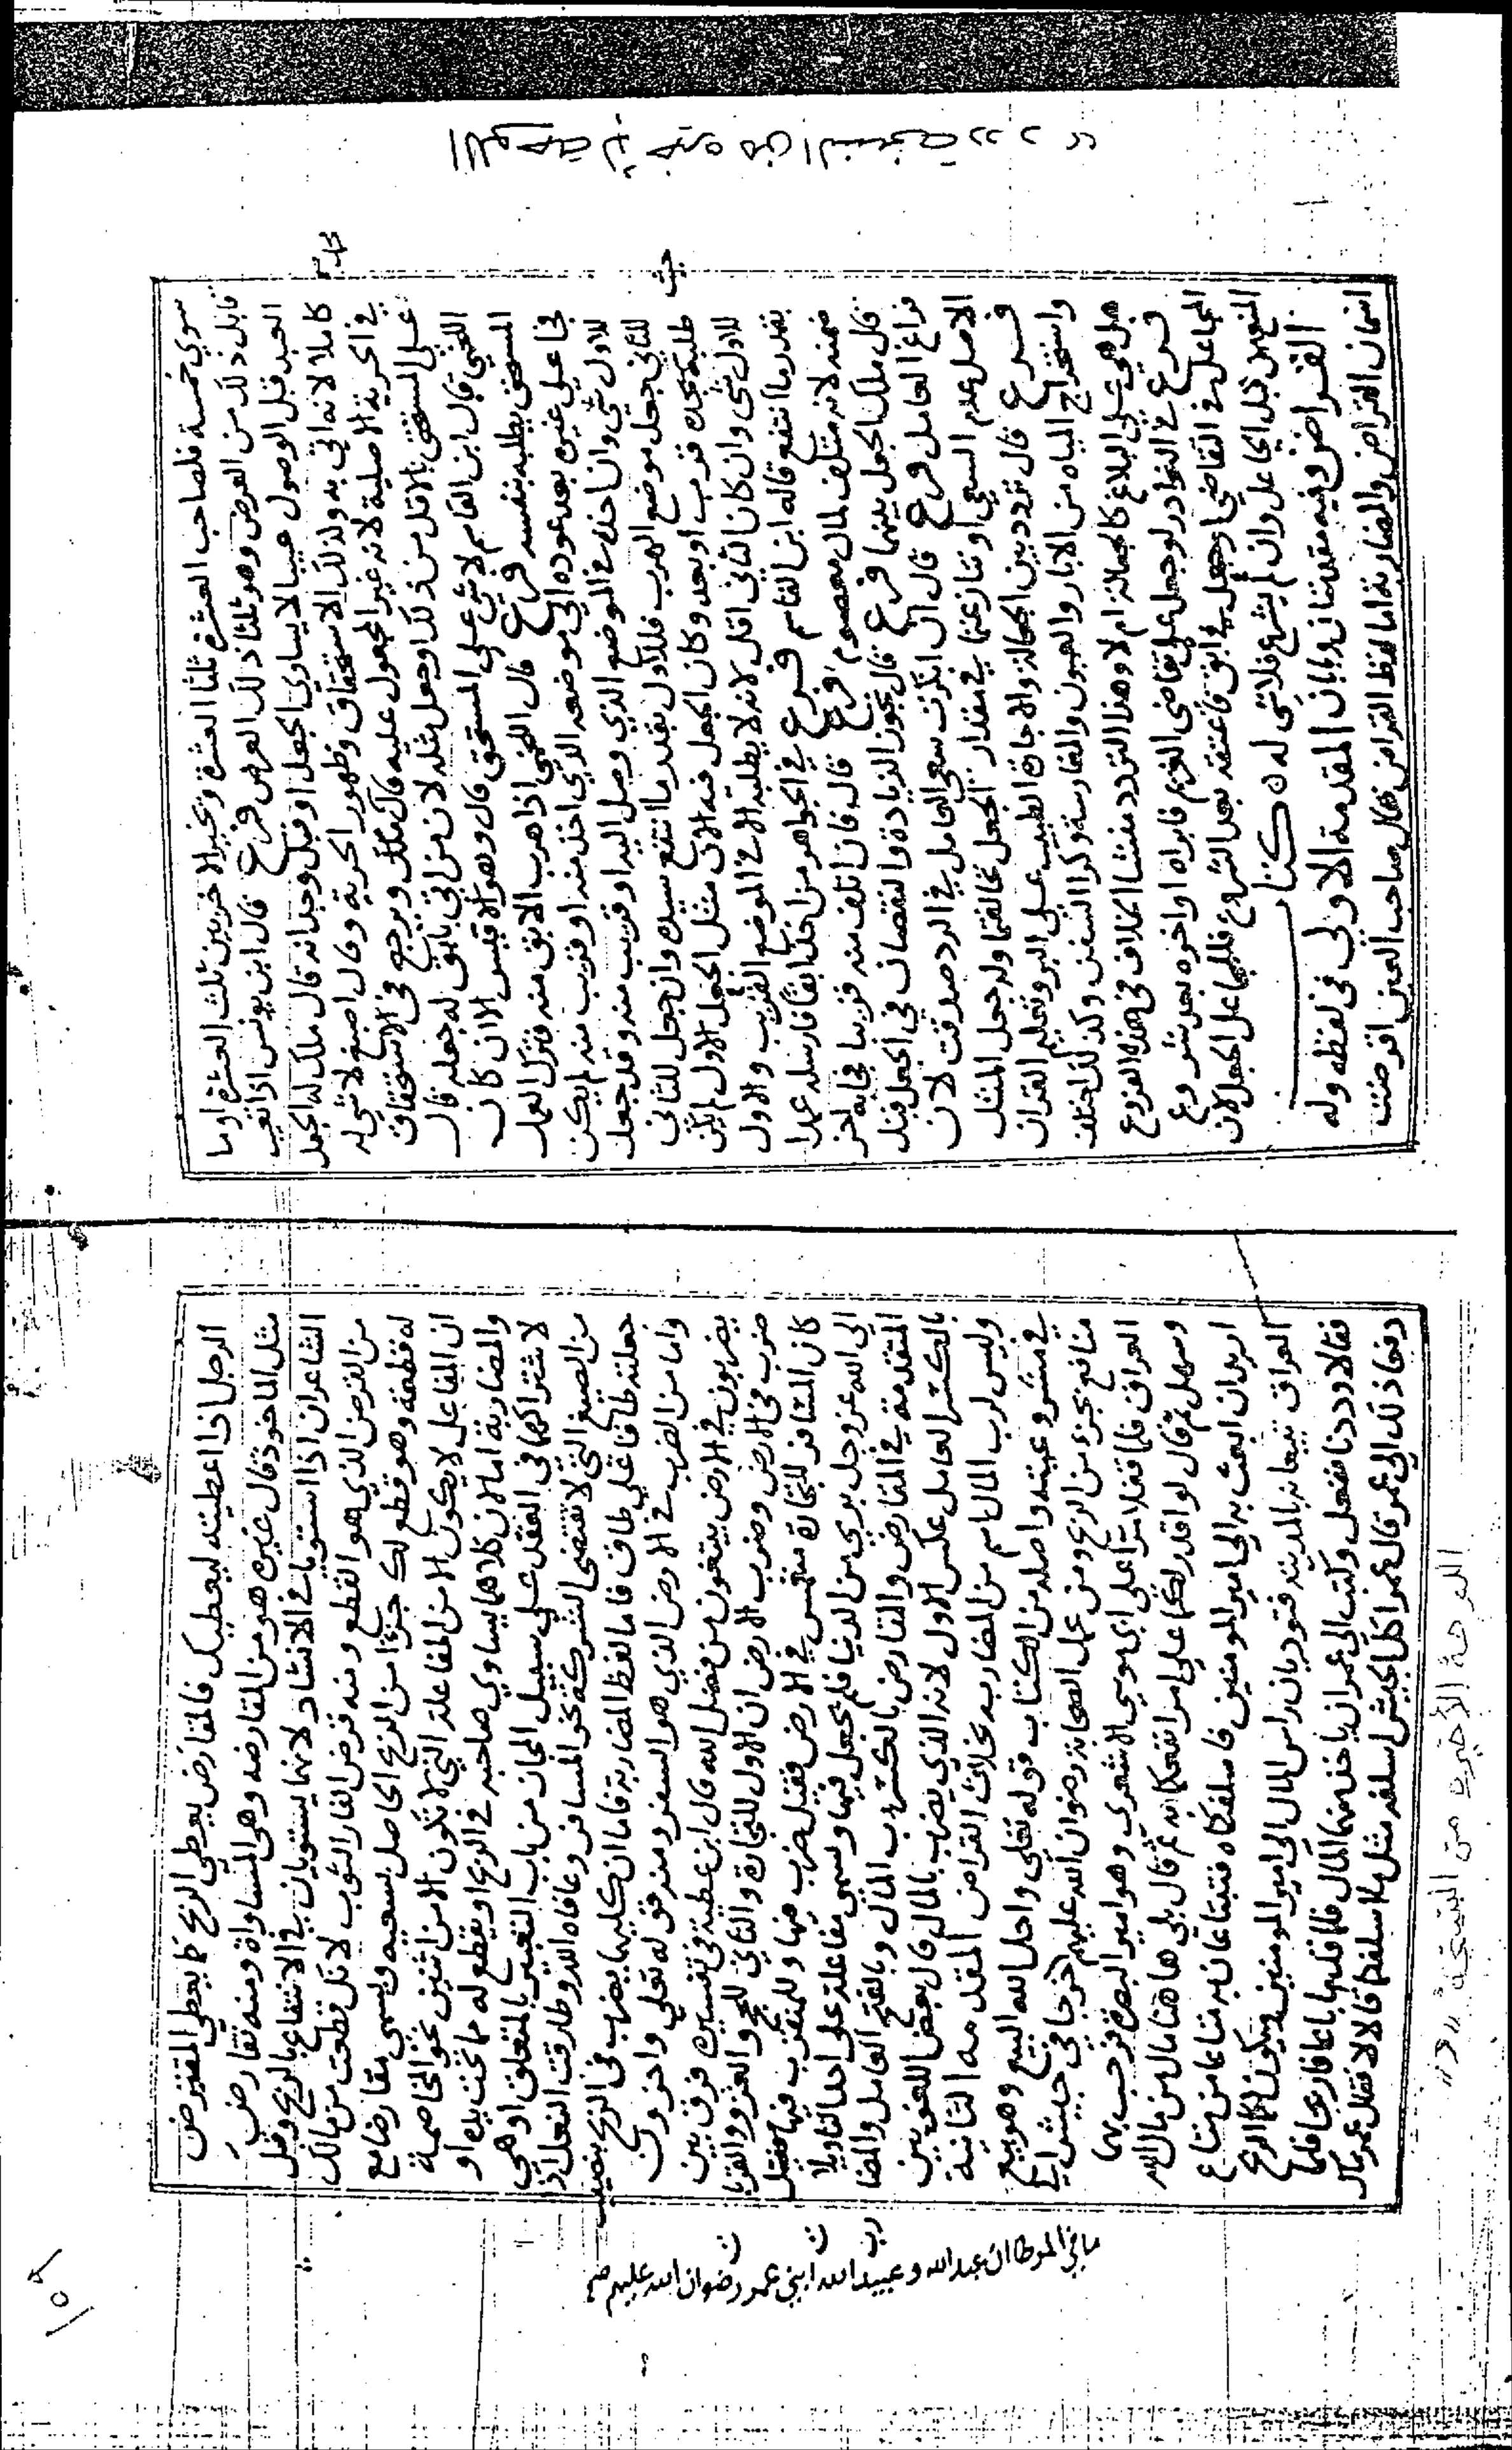 اللوحة الأخيرة من النسخة « د »
سوي خمسة فلصاحب العشرة ثلثا العشرة ويخير الاخر بين ثلث العشرة او ما
قابل ذلك من العرض وهو ثلثا ذلك العرض فرع قال ابن يونس اذا تعيب
العبد قبل الوصول عيبا لا يساوي الجعل او قبل وجدانه قال ملك له الجعل
كاملا لانه اتي به ولذلك الاستحقاق وظهور الحرية وقال اصبغ لا شي له
في الحرية الاصلية لانه غير المجعول عليه قال ملك ويرجع في الاستحقاق
علي المستحق بالاقل من ذلك او جعل مثله لان من اتي بابق له جعله قال
اللخمي قال ابن القاسم لا شي علي المستحق قال وهو الاقيس الا ان كان
المستحق يطلبه بنفسه فرع قال اللخمي اذا هرب الابق منه فترك العمل
فجاعلي غيره بعد عوده الي موضعه الذي اخذ منه او قريب منه لم يكن
للاول شي وان اخذ في الموضع الذي وصل اليه او قريب منه وقد جعل
للثاني جعل موضع الهرب فللاول بقدر ما انتفع سيده وان جعل للثاني
طلبه بحيث يجده قرب او بعد وكان الجعل فيه الان مثل الجعل الاول لم يكن
للاول شي وان كان الثاني اقل لانه لا يطلبه الا في الموضع القريب والاول
بقدر ما انتفع قاله ابن القاسم فرع في الجواهر من اخذ ابقا فارسله عمدا
ضمنه لانه متلف لمال معصوم فرع قال فان انفلت منه قريبا فجابه اخر
قال ملك الجعل بينهما فرع قال تجوز الزيادة والنقصان في الجعل قبل
فراغ العامل فرع قال ان انكرت سعي العامل في الرد صدقت لان
الاصل عدم السعي او تنازعتما في مقدار الجعل تحالفتما وله جعل المثل
فرع قال تردد بين الجعالة والاجارة الطبيب علي البرو وتعليم القران
واستخراج المياه من الابار والعيون والمغارسة وكرا السفن وكذلك اختلف
هل هي علي البلاغ كالجعالة ام لا وهذا التردد منشا الخلاف في هذه الفروع
فرع في النوادر لو جعل علي تقاضي الغريم فابراه او اخره بعد شروع
المجاعل في التقاضي او جعل في ابق فاعتقه بعد الشروع فللمجاعل الجعل لان
المنع من قبل الجاعل وان لم يشرع فلا شي له ه كتاب
القراض وفيه مقدمتان وبابان المقدمة الاولي في لفظه وله
اسمان القراض والمضاربة اما لفظ القراض فقال صاحب العين اقرضت
الرجل اذا اعطيته ليعطيك فالمقارض يعطي الربح كما يعطي المقترض
مثل الماخوذ قال غيره هو من المقارضه وهي المساواة ومنه تقارض
الشاعران اذا استويا في الانشاد لانهما يستويان في الانتفاع بالربح وقيل
من القرض الذي هو القطع ومنه قرض الفار الثوب لانك قطعت من مالك
له قطعة وهو قطع لك جزءا من الربح الحاصل بسعيه ويسمي مقارضا مع
ان المفاعل لا يكون الا من المفاعلة التي لا تكون الا من اثنين نحو المخاصمة
والمضاربة اما لان كلاهما يساوي صاحبه في الربح او يقطع له مما تحت يده او
لاشتراكهما في العقد علي سبيل المجاز من باب التعبير بالمتعلق او هي
من الصيغ التي لا تقتضي الشركة نحو المسافر وعافاه الله وطارقت النعل اذا
جعلته طاقا علي طاق فاما لفظ المضاربة فاما ان كليهما يضرب في الربح بنصيب
واما من الضرب في الارض الذي هو السفر ومنه قوله تعلي واخرون
يضربون في الارض يبتغون من فضل الله قال ابن عطية في تفسيره فرق بين
ضرب في الارض وضرب الارض ان الاول للتجارة والثاني للحج والغزو والقربات
كان المسافر للتجارة منغمس في الارض فقيل ضرب فيها وللمتقرب فيها
الي الله عز وجل بري من الدنيا فلم يجعل فيها وسمي مفاعلة علي احد التاويلات
المتقدمة في المقارض والمقارض بالكسر رب المال وبالفتح العامل والمضارب
بالكسر العامل عكس الاول لانه الذي يضرب بالمال قال بعض اللغويين
وليس لرب المال اسم من المضاربه بخلاف القراض المقدمه الثانية
في مشروعيته واصله من الكتاب قوله تعلي واحل الله البيع وهو بيع
منافع بجزء من الربح ومن عمل الصحابة رضوان الله عليهم
ما في الموطا ان عبد الله وعبيد الله ابني عمر رضوان الله عليهم
خرجا في جيش الي
العراق فلما قفلا مرا علي ابي موسي الاشعري وهو امير البصرة فرحب بهما
وسهل ثم قال لو اقدر لكما علي امر انفعكما به ثم قال بلي هاهنا مال من مال الله
اريد ان ابعث به الي امير المومنين فاسلفكماه فتبتاعان به متاعا من متاع
العراق تبيعانه بالمدينة فتوديان راس المال الي امير المومنين ويكون لكما الربح
فقالا وددنا ففعل وكتب الي عمر ان ياخذ منهما المال فلما قدما باعا فاربحا فلما
دفعا ذلك الي عمر قال عمر اكل الجيش اسلفه مثل ما اسلفكما قالا لا فقال عمر
الوحة الأخيرة من النسخة « د »
١٥٩